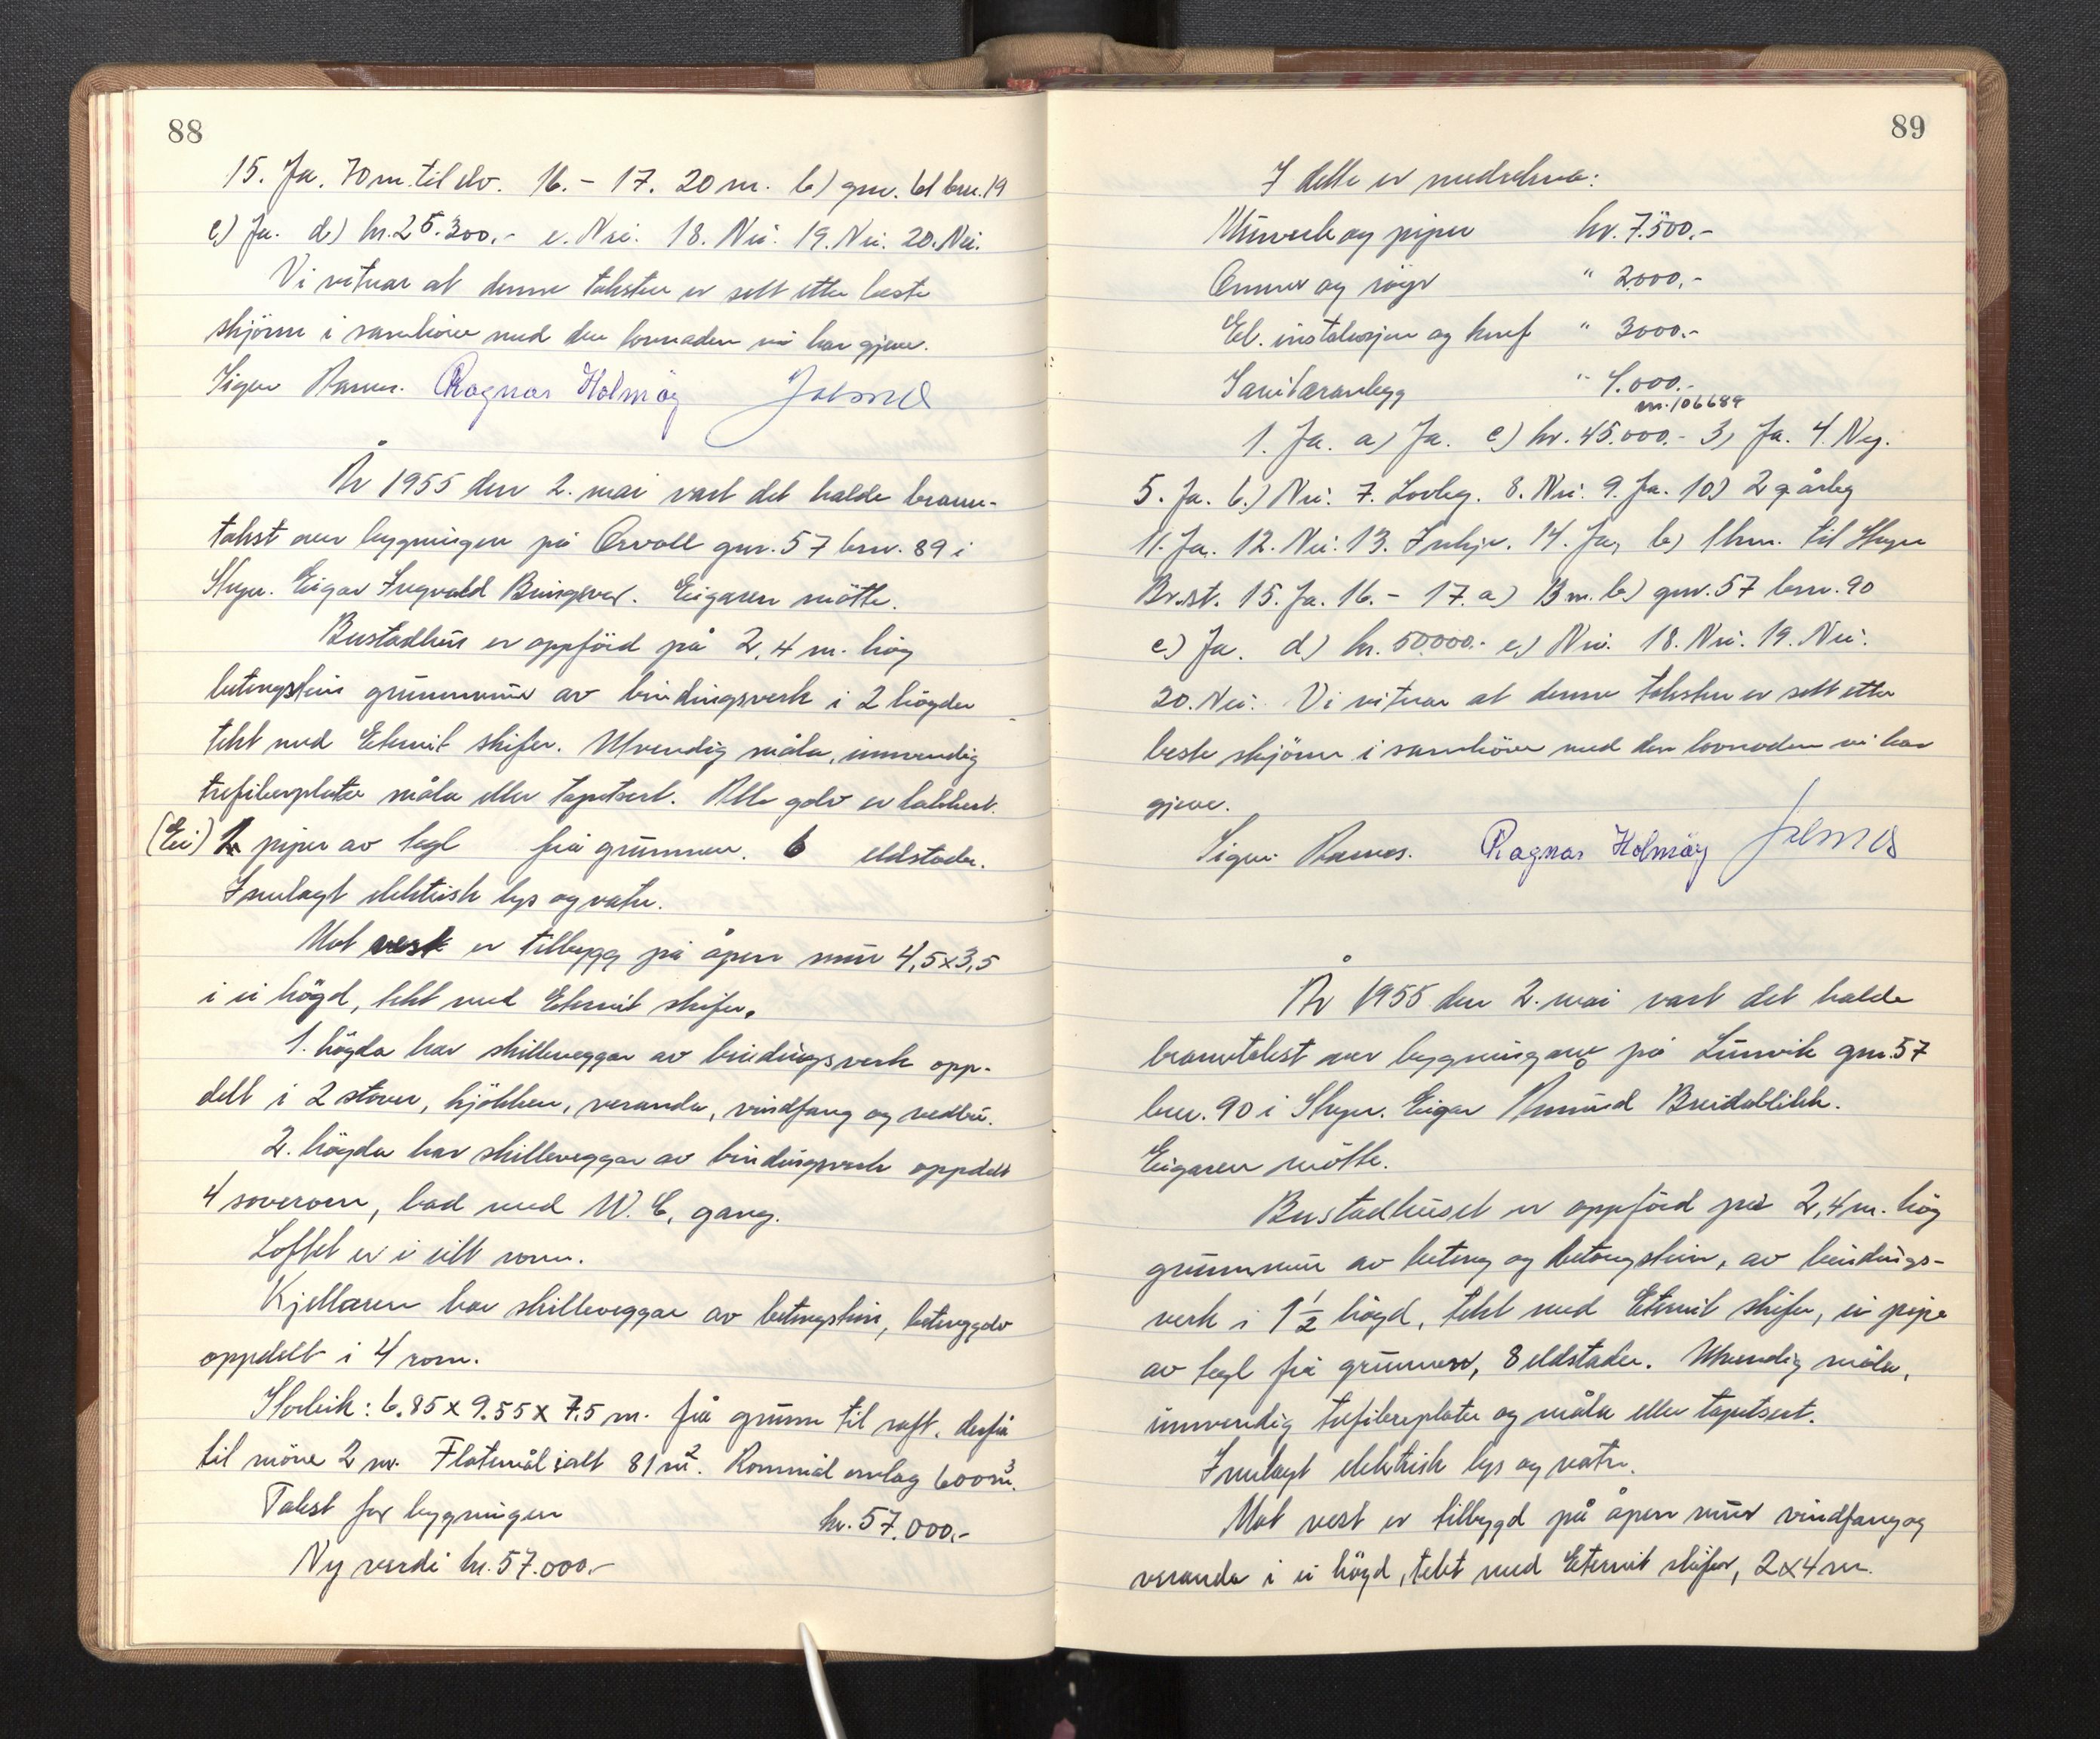 88
15. Ja. 70 m. til elv. 16. - 17. 20 m. b) gnr. 61 bnr. 19
c) Ja. d) kr. 25.300,- e. Nei. 18. Nei. 19. Nei. 20. Nei.
Vi vitnar at denne taksten er sett etter beste
skjönn i samhöve med den lovnaden vi har gjeve.
Ragnar Holmöy
År 1955 den 2. mai vart det halde brann-
takst over bygningen på Orvoll gnr. 57 bnr. 89 i
Stryn. Eigar Ingvald. Eigaren mötte.
Bustadhus er oppförd på 2,4 m. hög
betongstein grunnmur av bindingsverk i 2 högder
tekt med Eternit skifer. Utvendig måla, innvendig
trefiberplater måla eller tapetsert. Alle golv er lakkert.
(Ei) piper av tegl frå grunnen. 6 eldstader.
Innlagt elektrisk lys og vatn.
Mot vest er tilbygg på åpen mur 4,5x3,5
i ei högd, tekt med Eternit skifer.
1. högda har skilleveggar av bindingsverk opp-
delt i 2 stover, kjökken, veranda, vindfang og vedbu.
2. högda har skilleveggar av bindingsverk oppdelt
4 soverom, bad med W. C, gang.
Loftet er i eitt rom.
Kjellaren har skilleveggar av betongstein, betonggolv
oppdelt i 4 rom.
Storleik: 6.85 x 9.55 x 7,5 m. frå grunn til raft, derfrå
til möne 2 m. Flatemål ialt 81 m². Rommål omlag 600 m³.
Takst for bygningen kr. 57.000,-
Ny verdi kr. 57.000,-
89
I dette er medrekna:
Murverk og piper kr. 7.500,-
Omner og röyr " 2000,-
El. instalasjon og " 3000.-
Sanitæranlegg " 4.000.-
m. 106689
1. Ja. a) Ja. c) kr. 45.000.- 3) Ja. 4. Ny.
5. Ja. 6.) Nei. 7. Lovleg. 8. Nei. 9. Ja. 10) 2 g. årleg
11. Ja. 12. Nei. 13. Innkjø. 14. Ja, b) 1 km. til Stryn
Br.st. 15. Ja. 16. - 17. a) 13 m. b) gnr. 57 bnr. 90
c) Ja. d) kr. 50000.- e) Nei. 18. Nei. 19. Nei.
20. Nei. Vi vitnar at denne taksten er sett etter
beste skjönn i samhöve med den lovnaden vi har
gjeve.
Ragnar Holmöy
År 1955 den 2. mai vart det halde
branntakst over bygningane på Lunvik gnr. 57
bnr. 90 i Stryn. Eigar Breidablikk.
Eigaren mötte.
Bustadhuset er oppförd på 2,4 m. hög
grunnmur av betong og betongstein, av bindings-
verk i 1½ högd, tekt med Eternit skifer, ei pipe
av tegl frå grunnen, 8 eldstader. Utvendig måla,
innvendig trefiberplater og måla eller tapetsert.
Innlagt elektrisk lys og vatn.
Mot vest er tilbygd på åpen mur vindfang og
veranda i ei högd, tekt med Eternit skifer, 2x4 m.